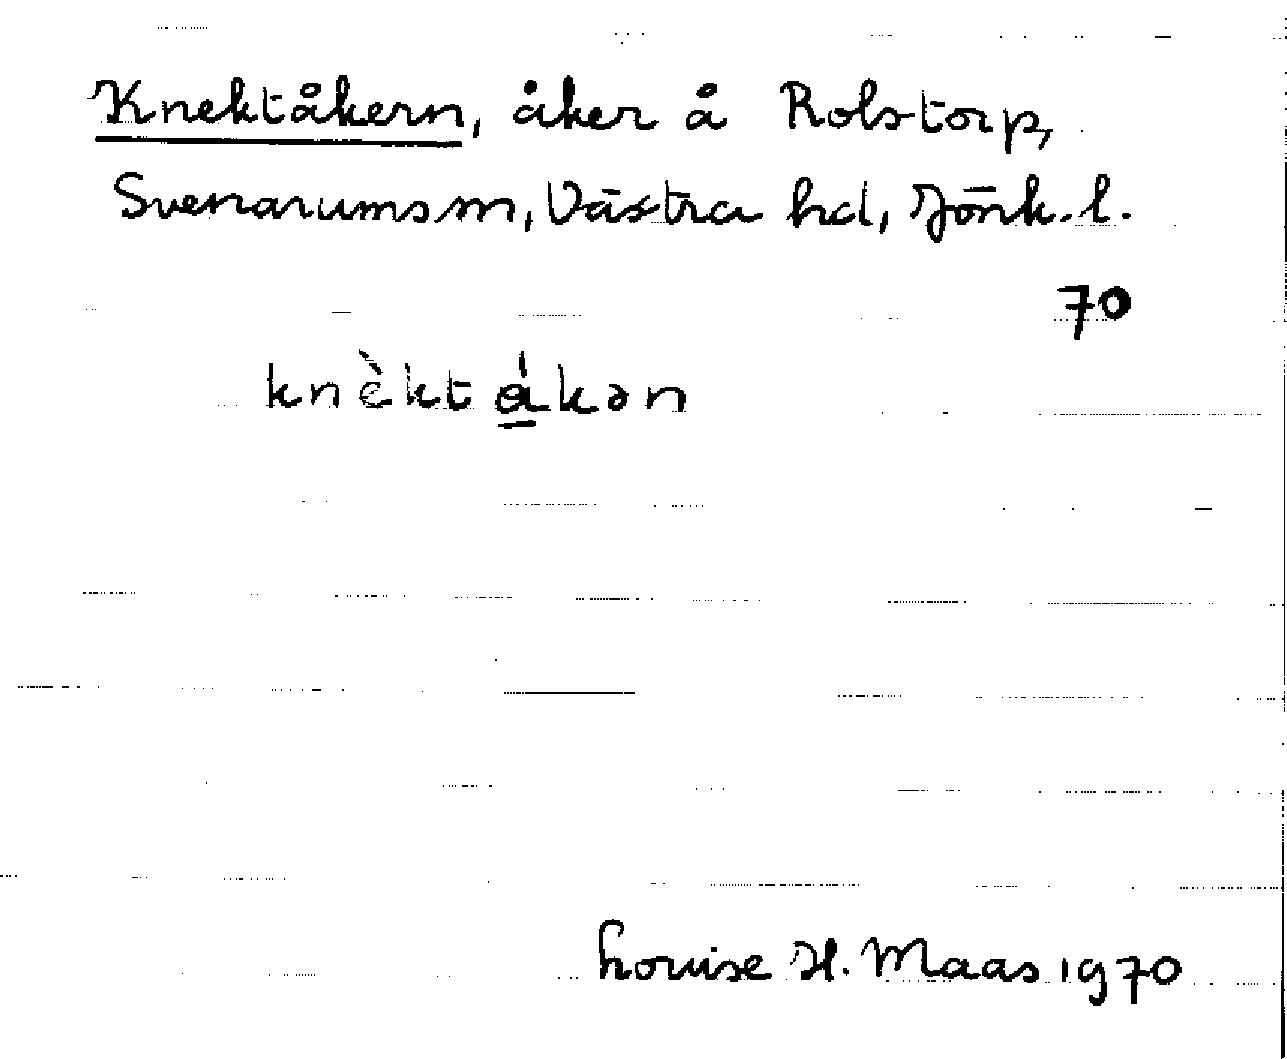 Knektåkern, åker å Rolstorp,
Svenarums sn, Västra hd, Jönk. l.
70
knèktákən
Louise H. Maas 1970